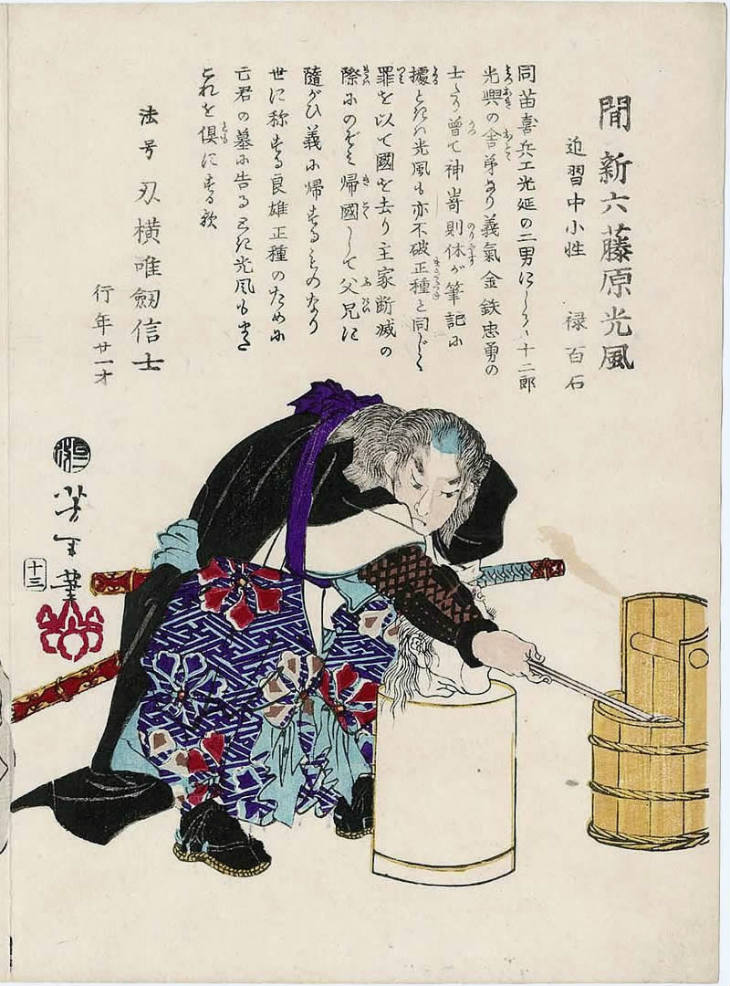 間新六藤原光風
近習中小性 禄百石
同苗喜兵エ光延の二男にして、十二郎
光興の舎弟なり義氣金鉄忠勇の
士たり曽て神嵜則休が筆記に
據ときハ光風も亦不破正種と同じく
罪を以て國を去り主家断滅の
際にのぞミ帰國して父兄に
隨がひ義に帰するものなり
世に称する良雄正種のために
亡君の墓に告る
これを倶にする歟
法号 刃横唯劔信士
行年廿一才
芳年筆
十三